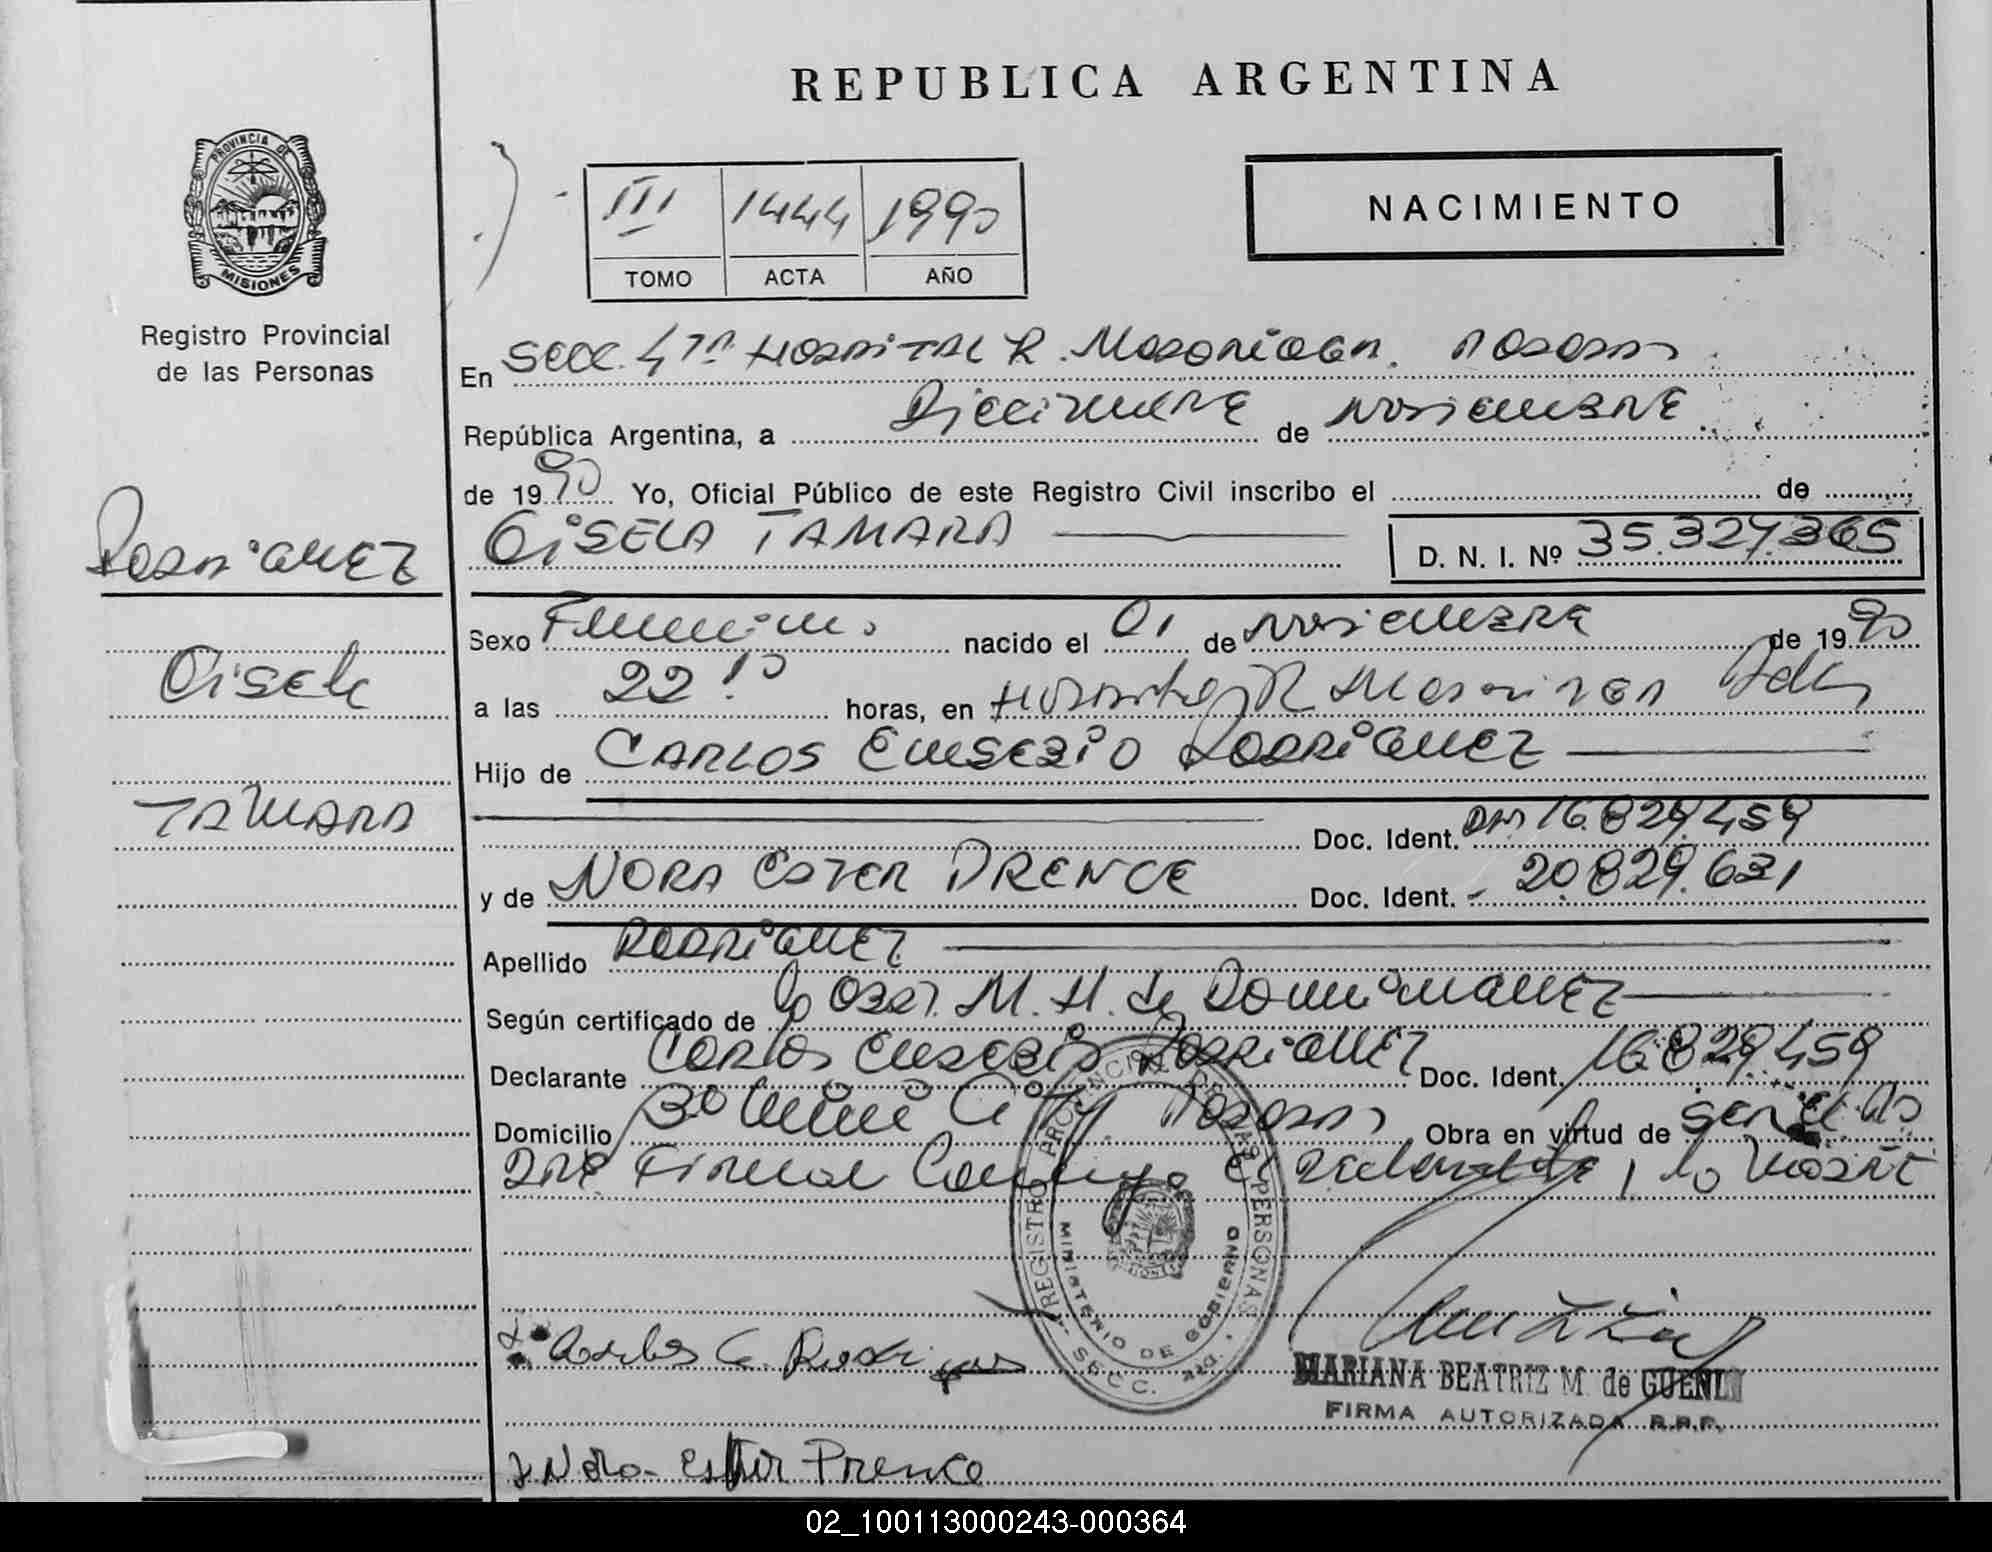 REPUBLICA ARGENTINA
PROVINCIA DE
MISIONES
Registro Provincial
de las Personas
III 1444 1990
TOMO ACTA AÑO
NACIMIENTO
En Secc. 4ta Hospital R. Posadas
República Argentina, a Diecinueve de Noviembre
de 1990 Yo, Oficial Público de este Registro Civil inscribo el de
Rodriguez
GISELA TAMARA
D. N. I. Nº 35.327.365
Sexo Femenino nacido el 01 de Noviembre de 1990
Gisela
a las 22 10 horas, en Hospital R
Hijo de CARLOS EUSEBIO RODRIGUEZ
TAMARA
Doc. Ident. DNI 16.829.459
y de NORA ESTER PRENCE Doc. Ident. 20.829.631
Apellido RODRIGUEZ
Según certificado de M. H. de
Declarante Carlos Eusebio Rodriguez Doc. Ident. 16.829.459
Domicilio Posadas Obra en virtud de ser el
Firman el declarante, la madre
REGISTRO PROVINCIAL DE LAS PERSONAS
MINISTERIO DE GOBIERNO
SECC. 4ta.
Carlos E. Rodriguez
MARIANA BEATRIZ M. de
FIRMA AUTORIZADA R.P.P.
Nora Ester Prence
02_100113000243-000364